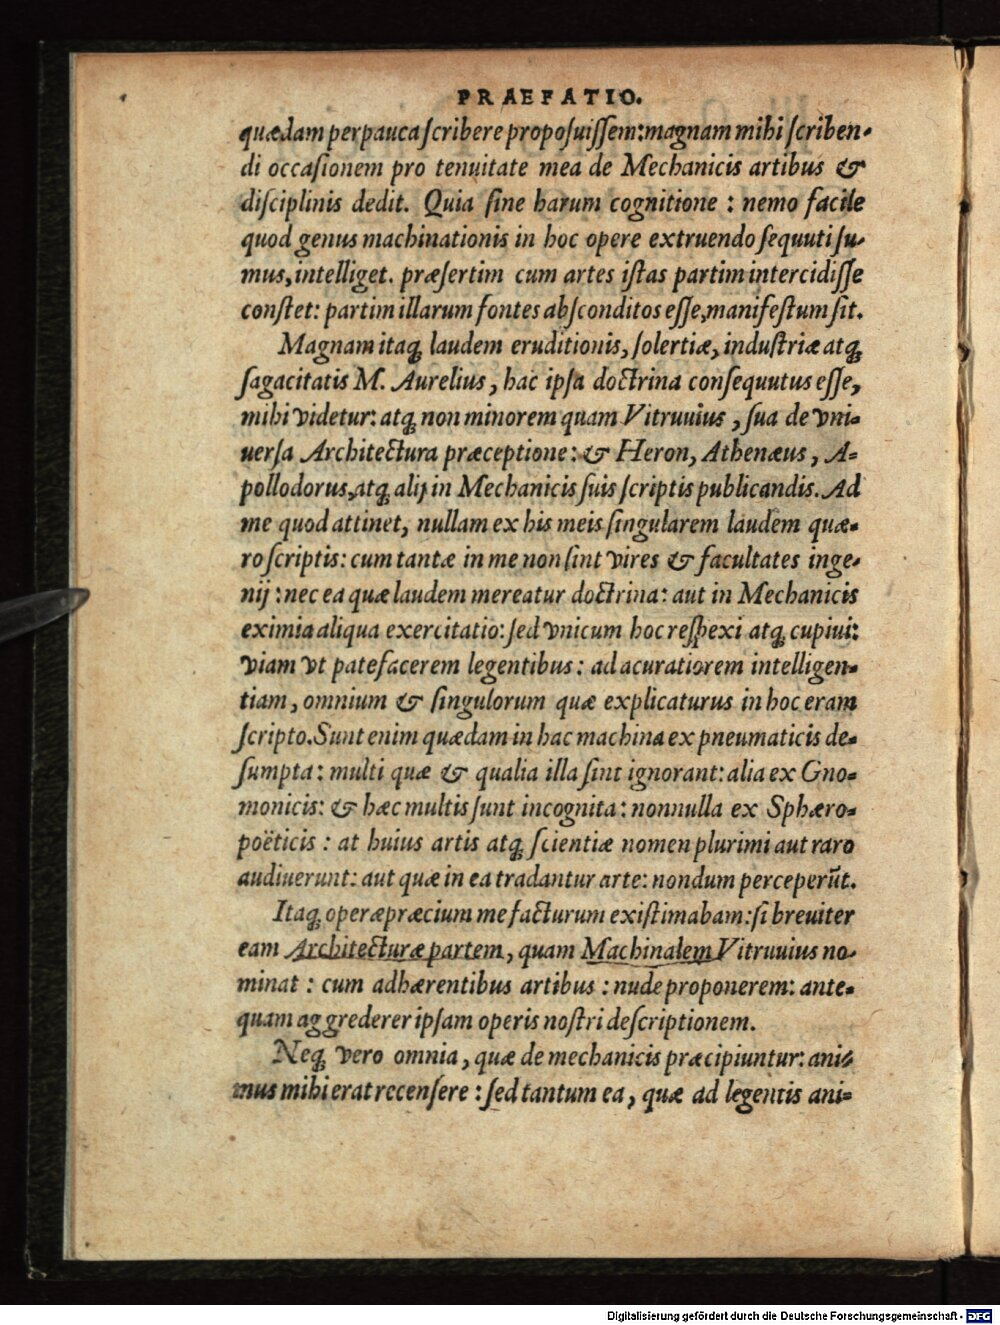 PRAEFATIO.
quædam perpauca ſcribere propoſuiſſem: magnam mihi ſcriben-
di occaſionem pro tenuitate mea de Mechanicis artibus &
diſciplinis dedit. Quia ſine harum cognitione : nemo facile
quod genus machinationis in hoc opere extruendo ſequuti ſu-
mus, intelliget. præſertim cum artes iſtas partim intercidiſſe
conſtet: partim illarum fontes abſconditos eſſe, manifeſtum ſit.
Magnam itaq; laudem eruditionis, ſolertiæ, induſtriæ atq;
ſagacitatis M. Aurelius, hac ipſa doctrina conſequutus eſſe,
mihi videtur: atq; non minorem quam Vitruuius, ſua de vni-
uerſa Architectura præceptione: & Heron, Athenæus, A-
pollodorus, atq; alij in Mechanicis ſuis ſcriptis publicandis. Ad
me quod attinet, nullam ex his meis ſingularem laudem quæ-
ro ſcriptis: cum tantæ in me non ſint vires & facultates inge-
nij : nec ea quæ laudem mereatur doctrina: aut in Mechanicis
eximia aliqua exercitatio: ſed vnicum hoc reſpexi atq; cupiui:
viam vt patefacerem legentibus: ad acuratiorem intelligen-
tiam, omnium & ſingulorum quæ explicaturus in hoc eram
ſcripto. Sunt enim quædam in hac machina ex pneumaticis de-
ſumpta: multi quæ & qualia illa ſint ignorant: alia ex Gno-
monicis: & hæc multis ſunt incognita: nonnulla ex Sphæro-
poëticis : at huius artis atq; ſcientiæ nomen plurimi aut raro
audiuerunt: aut quæ in ea tradantur arte: nondum perceperūt.
Itaq; operæpræcium me facturum exiſtimabam: ſi breuiter
eam Architecturæ partem, quam Machinalem Vitruuius no-
minat : cum adhærentibus artibus : nude proponerem: ante-
quam aggrederer ipſam operis noſtri deſcriptionem.
Neq; vero omnia, quæ de mechanicis præcipiuntur: ani-
mus mihi erat recenſere : ſed tantum ea, quæ ad legentis ani-
Digitalisierung gefördert durch die Deutsche Forschungsgemeinschaft - DFG